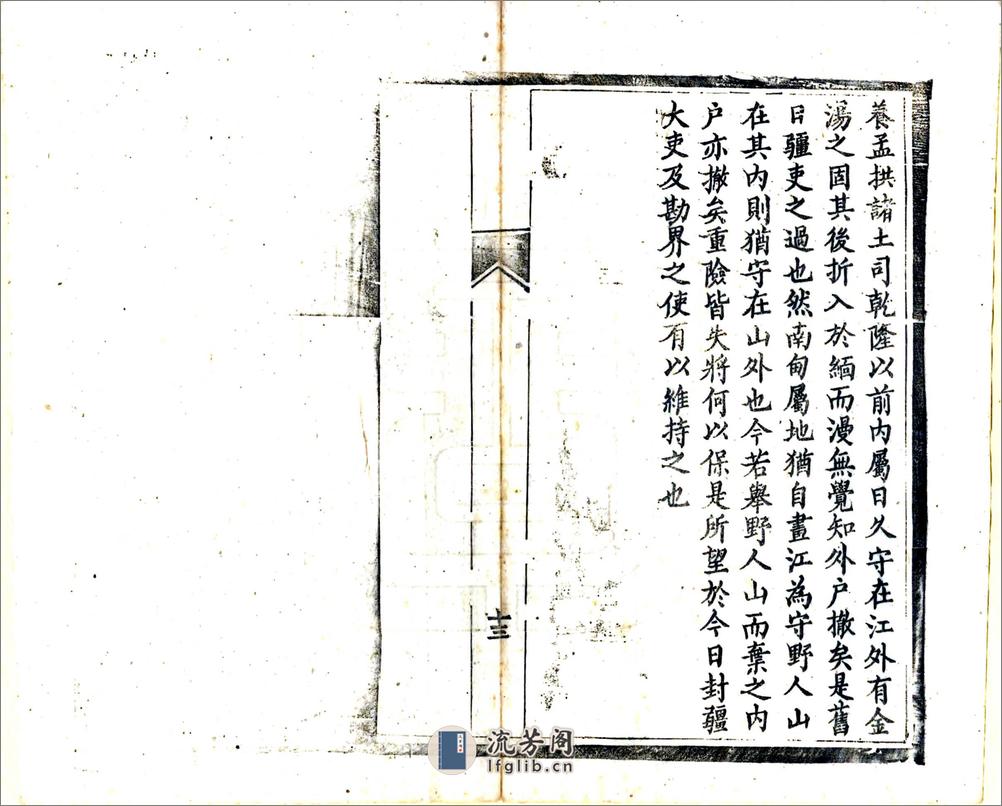 養孟拱諸土司乾隆以前內屬日久守在江外有金
湯之固其後折入於緬而漫無覺知外戶撤矣是舊
日疆吏之過也然南甸屬地猶自畫江為守野人山
在其內則猶守在山外也今若舉野人山而棄之內
户亦撤矣重險皆失將何以保是所望於今日封疆
大吏及勘界之使有以維持之也
十三
流芳阁
lfglib.cn